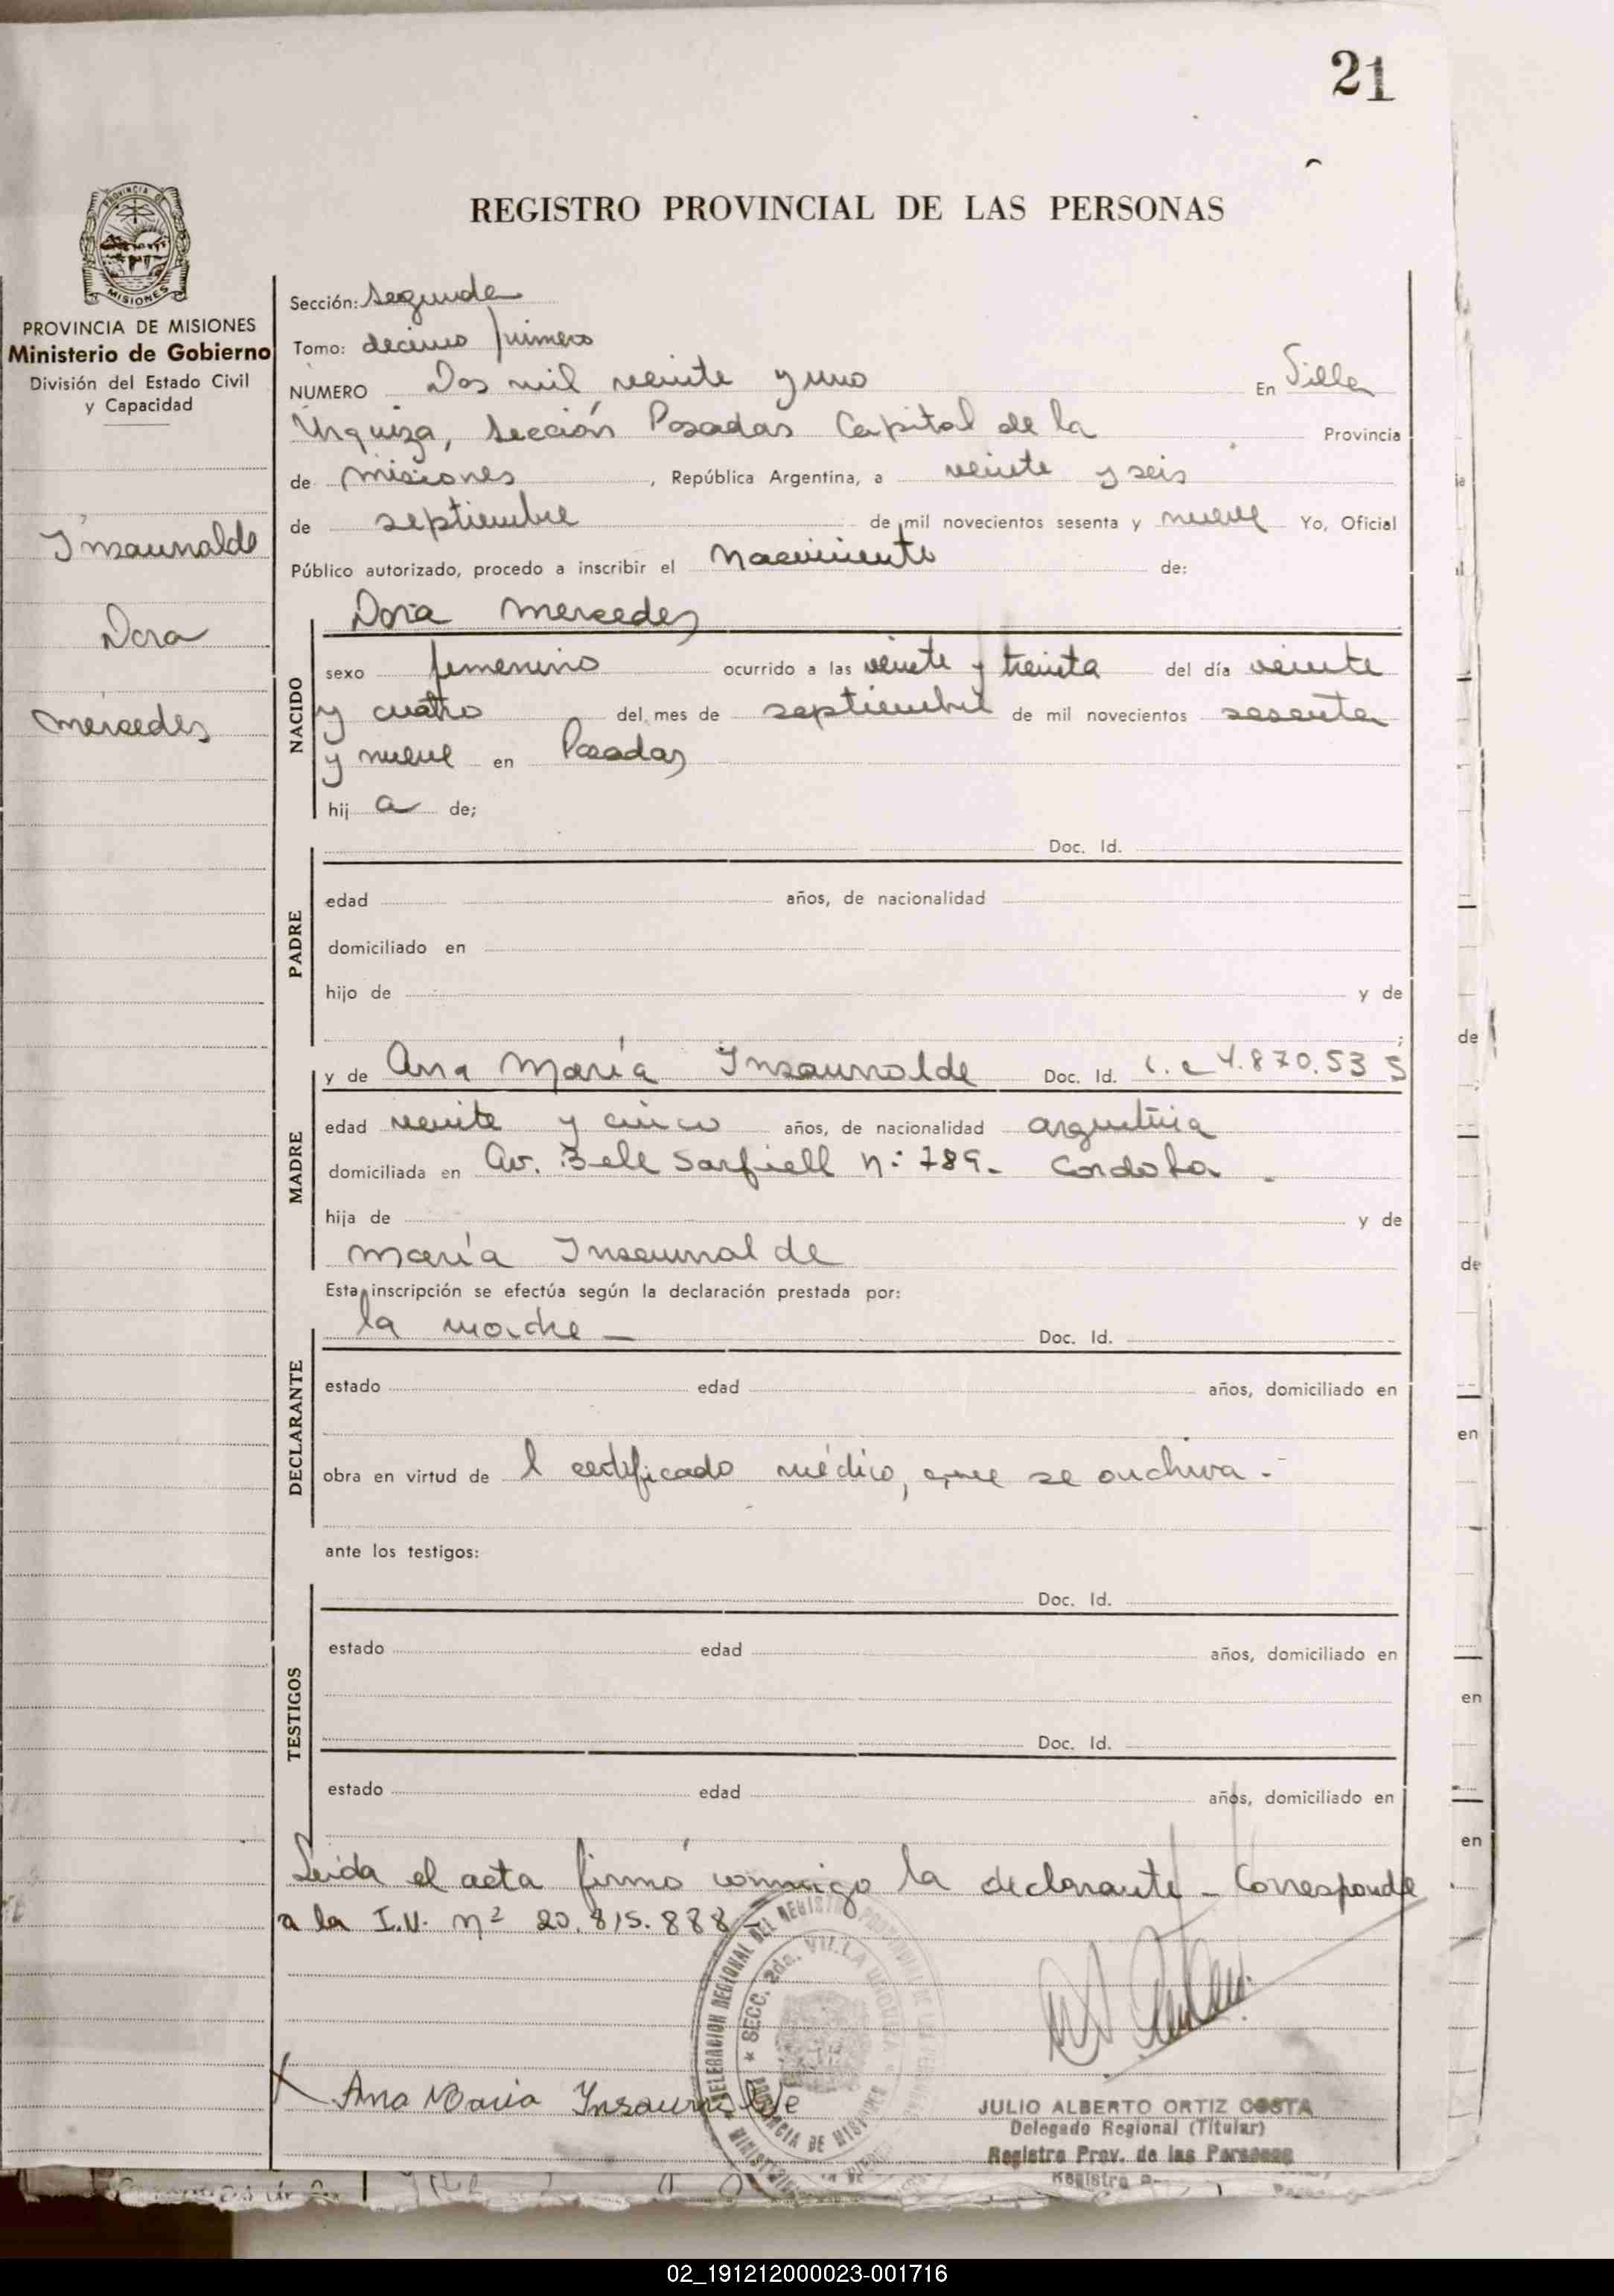 21
REGISTRO PROVINCIAL DE LAS PERSONAS
PROVINCIA DE MISIONES
Ministerio de Gobierno
División del Estado Civil
y Capacidad
Insaurralde
Dora
Mercedes
Sección: Segunda
Tomo: décimo primero
NUMERO Dos mil veinte y uno En Villa
Urquiza, Sección Posadas Capital de la Provincia
de Misiones, República Argentina, a veinte y seis
de septiembre de mil novecientos sesenta y nueve Yo, Oficial
Público autorizado, procedo a inscribir el Nacimiento de:
NACIDO
Dora Mercedes
sexo femenino ocurrido a las veinte y treinta del día veinte
y cuatro del mes de septiembre de mil novecientos sesenta
y nueve en Posadas
hij a de;
PADRE
Doc. Id.
edad años, de nacionalidad
domiciliado en
hijo de y de
;
MADRE
y de Ana María Insaurralde Doc. Id. L.C 4.870.535
edad veinte y cinco años, de nacionalidad argentina
domiciliada en Av. Bele Sarfiell n: 789- Cordoba
hija de y de
María Insaurralde
Esta inscripción se efectúa según la declaración prestada por:
DECLARANTE
la madre - Doc. Id.
estado edad años, domiciliado en
obra en virtud de l certificado médico, que se archiva.-
ante los testigos:
TESTIGOS
Doc. Id.
estado edad años, domiciliado en
Doc. Id.
estado edad años, domiciliado en
Leida el acta firmó conmigo la declarante - Corresponde
a la I.N. nº 20.815.888-
DELEGACION REGIONAL DEL REGISTRO PROVINCIAL DE LAS PERSONAS
SECC. 2da. VILLA URQUIZA
PROVINCIA DE MISIONES
Ana Maria Insaurralde
JULIO ALBERTO ORTIZ COSTA
Delegado Regional (Titular)
Registro Prov. de las Personas
02_191212000023-001716